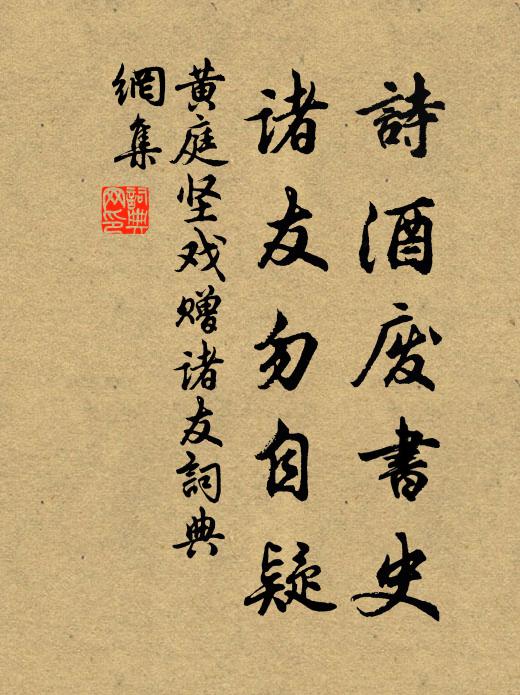 詩酒废書史
诸友勿自疑
黄庭坚戏赠诸友詞典
網集
詞典
网印